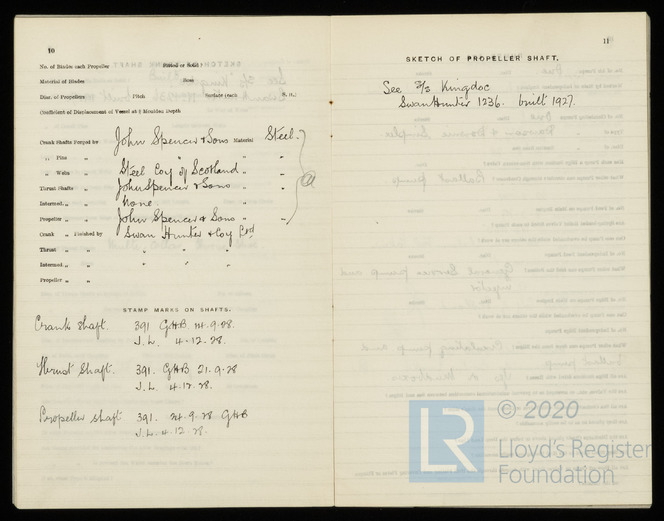 10
No. of Blades each Propeller Fitted or Solid?
Material of Blades Boss
Diar. of Propellers Pitch Surface (each S. ft.)
Coefficient of Displacement of Vessel at ¾ Moulded Depth
Crank Shafts Forged by John Spencer & Sons Material Steel.
„ Pins „ „ „
„ Webs „ Steel Coy of Scotland „ „
Thrust Shafts „ John Spencer & Sons „ „
Intermed. „ „ None „
Propeller „ „ John Spencer & Sons „ „
Crank „ Finished by Swan Hunter & Coy Ltd
Thrust „ „ „ „ „
Intermed. „ „
Propeller „ „
STAMP MARKS ON SHAFTS.
Crank Shaft. 391 GHB 14.9.28.
J.L. 4-12-28.
Thrust Shaft. 391. GHB 21.9.28
J.L. 4.12.28.
Propeller shaft 391. 24.9.28 GHB
J.L. 4.12.28.
11
SKETCH OF PROPELLER SHAFT.
See S/S Kingdoc
Swan Hunter 1236. built 1927.
LR
© 2020
Lloyd's Register
Foundation